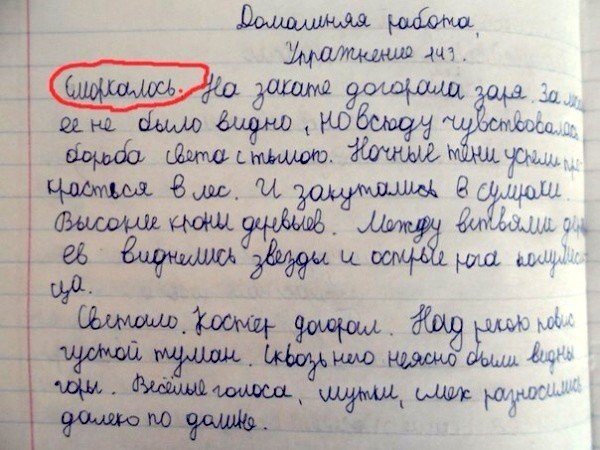 Домашняя работа,
Упражнение 143.
Сморкалось. На закате догорала заря. За
ее не было видно, но всюду чувствовалась
борьба света с тьмою. Ночные тени успели про
красться в лес. И закутались в сумраки.
Высокие кроны деревьев. Между ветвями
ев виднелись звезды и острые рога полумеся
ца.
Светало. Костер догорал. Над рекою повис
густой туман. Сквозь него неясно были видны
горы. Весёлые голоса, шутки, смех разносились
далеко по долине.